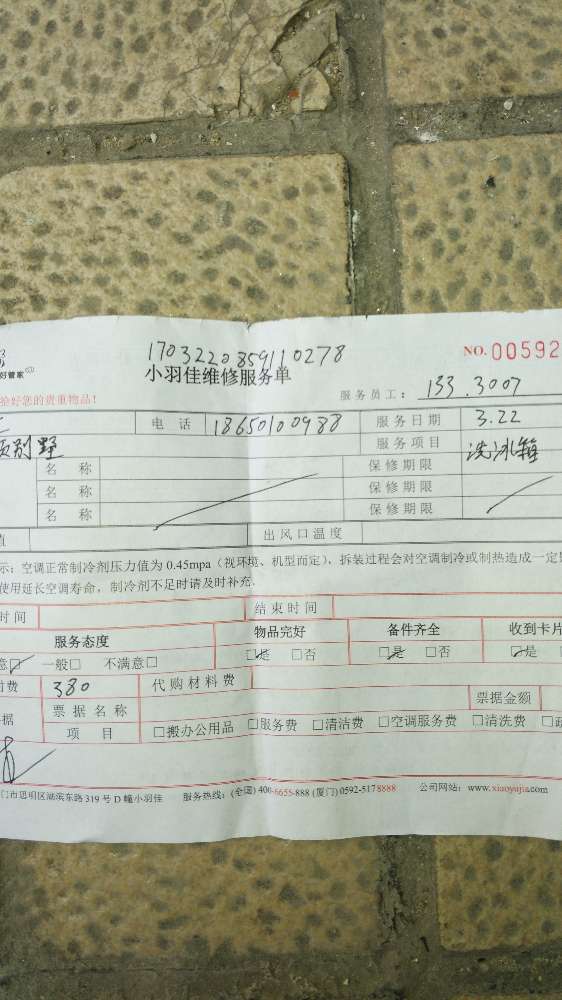 1703220859110278
好管家
小羽佳维修服务单
NO. 00592
给好您的贵重物品!
服务员工: 133.3007
电 话 18650100988 服务日期 3.22
别墅 服务项目 洗冰箱
名 称 保修期限
名 称 保修期限
名 称 保修期限
值 出风口温度
示: 空调正常制冷剂压力值为 0.45mpa (视环境、机型而定), 拆装过程会对空调制冷或制热造成一定
使用延长空调寿命, 制冷剂不足时请及时补充.
时间 结束时间
服务态度 物品完好 备件齐全 收到卡片
意□ 一般□ 不满意□ □是 □否 □是 □否 □是
付费 380 代购材料费
据 票据名称 票据金额
项 目 □搬办公用品 □服务费 □清洁费 □空调服务费 □清洗费
门市思明区湖滨东路 319 号 D 幢小羽佳 服务热线: (全国) 400-6655-888 (厦门) 0592-5178888 公司网站: www.xiaoyujia.com